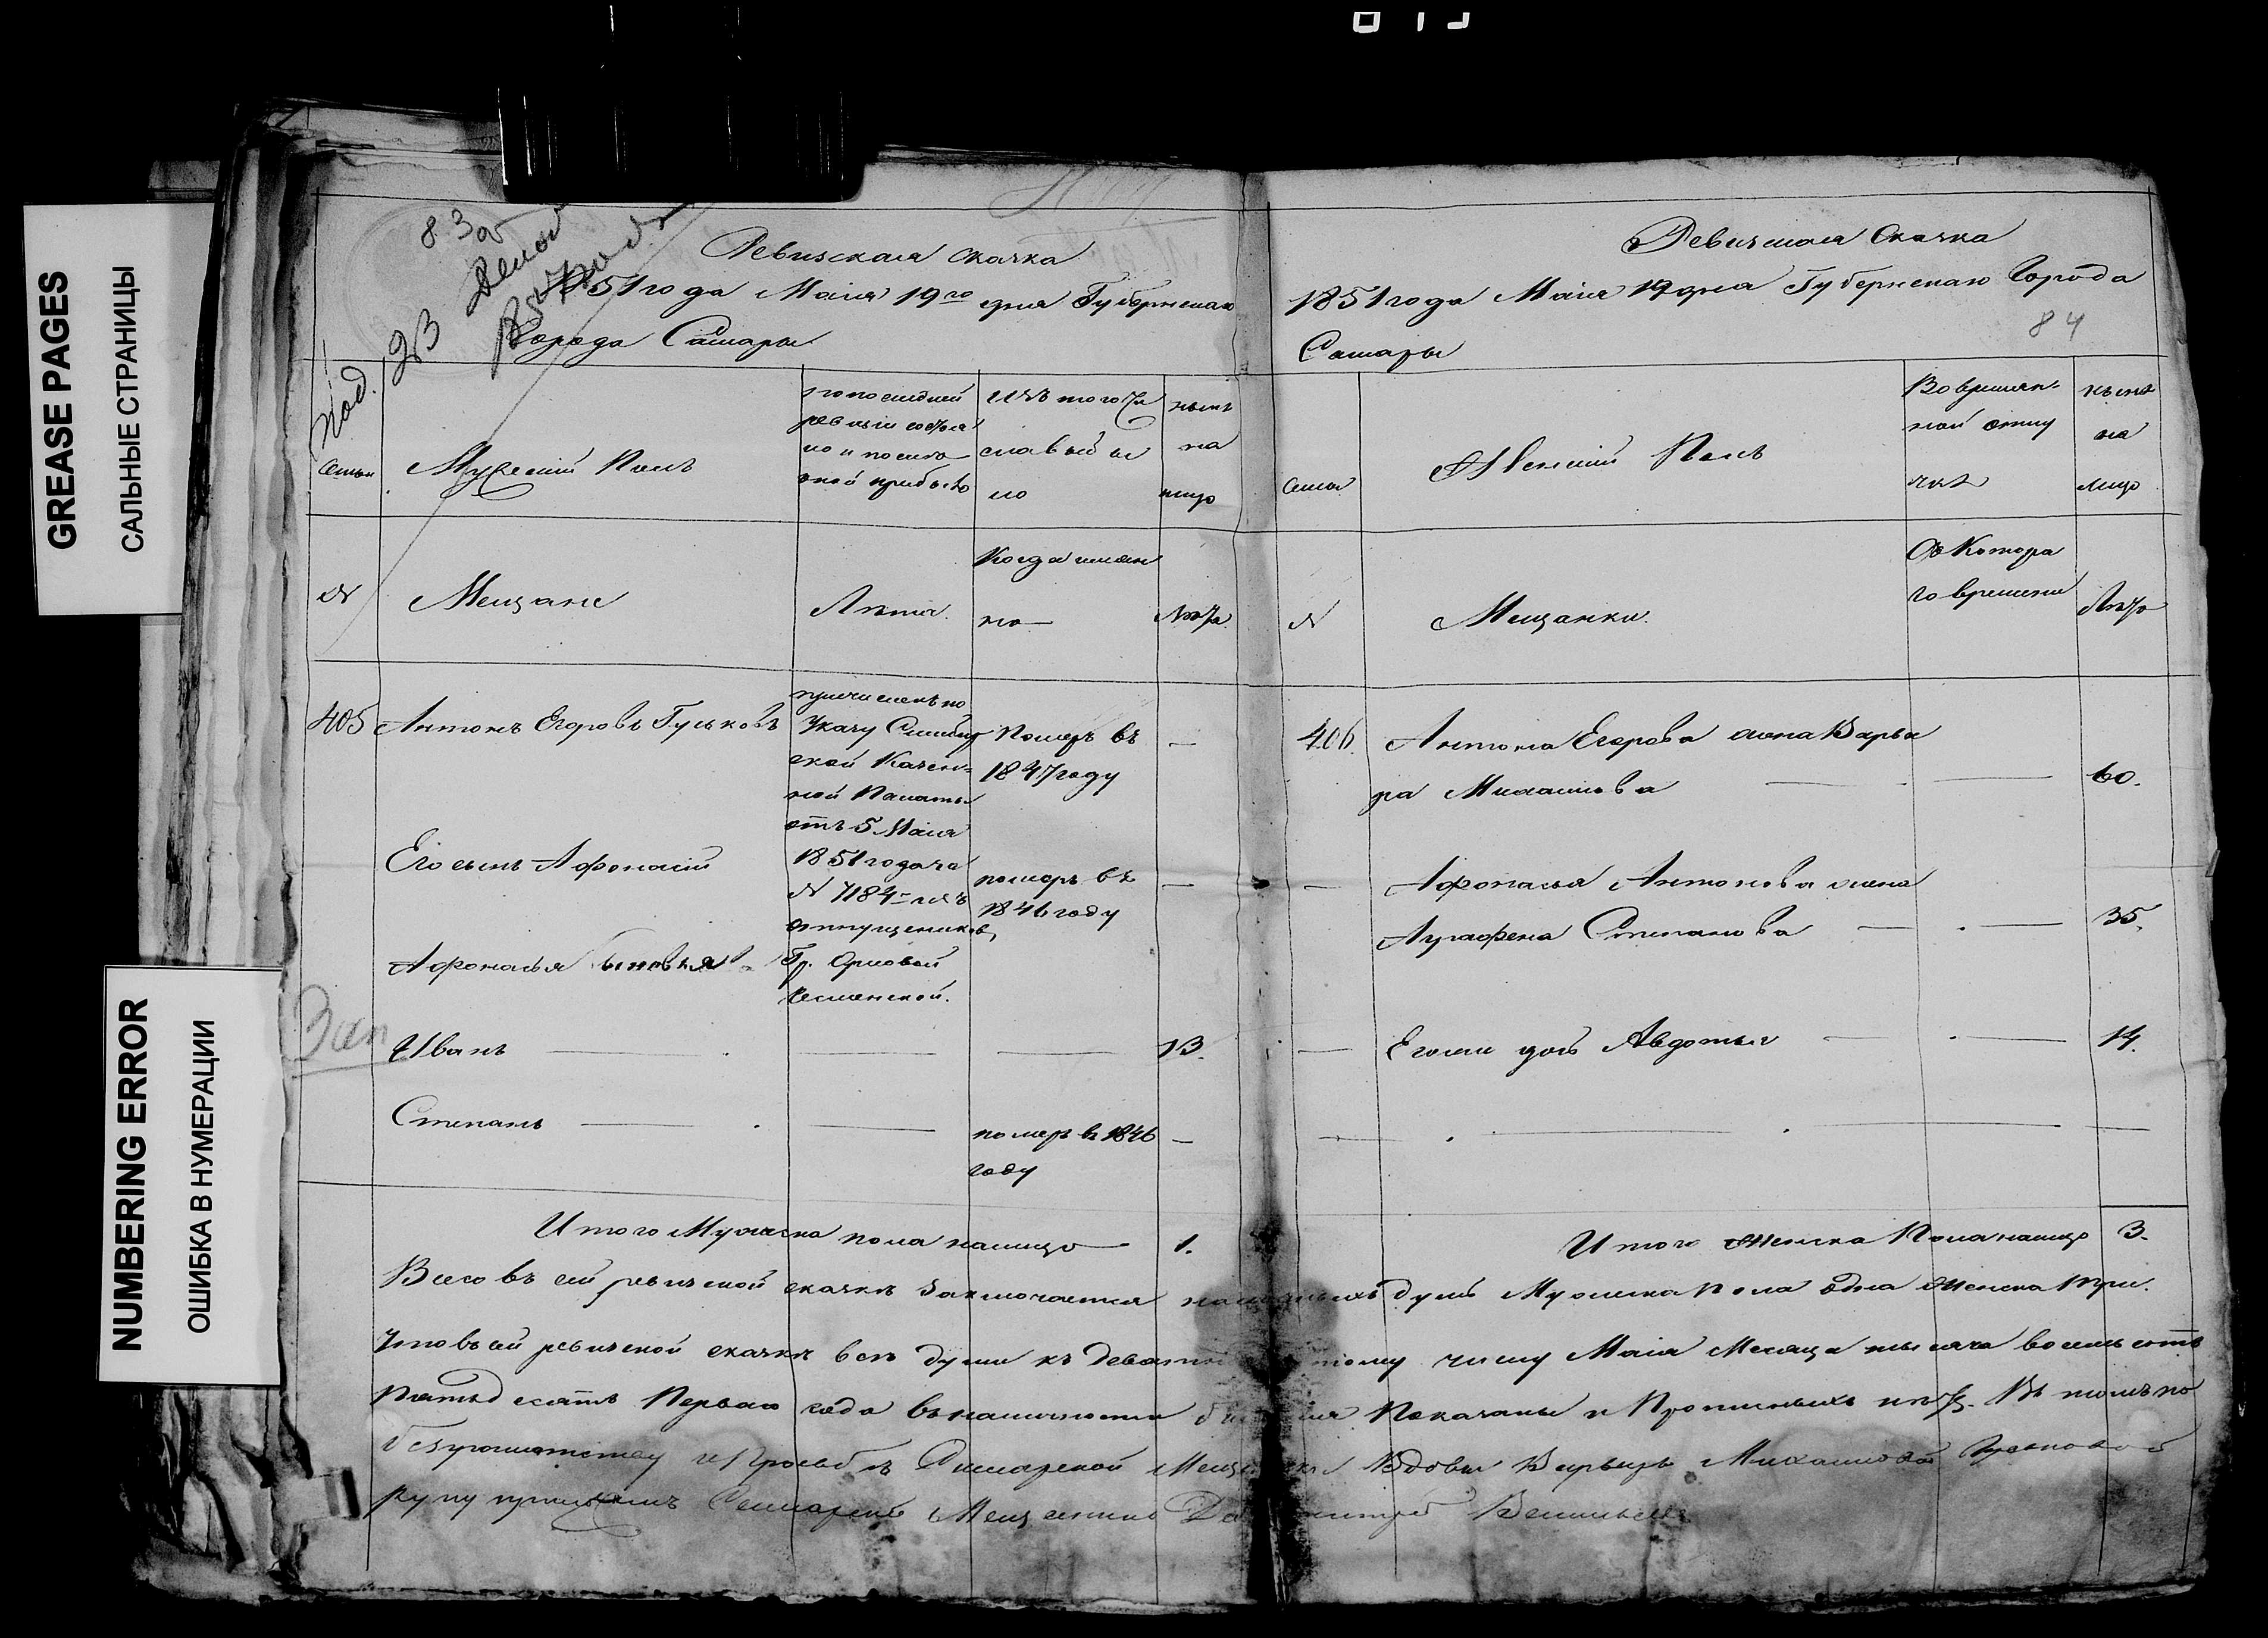 GREASE PAGES
САЛЬНЫЕ СТРАНИЦЫ
NUMBERING ERROR
ОШИБКА В НУМЕРАЦИИ
83а
Ревизская сказка
1851 года Маія 19го дня Губернскаго
Города Самары
семьи
Мужеский Полъ
по последней
ревизіи состоя
ло и после
оной прибыло
изъ того чи
сла выбы
ло
ныне
на
лицо
№
Мещане
Лета.
Когда имян
но
Лета
405 Антонъ Егоровъ Гуськовъ
причисленъ по
Указу Симбир
ской Казен=
ной Палаты
отъ 5 Маія
1851 года за
№ 7184 изъ
отпущениковъ,
Гр. Орловой
Чесменской.
Померъ въ
1847 году
—
Его сынъ Афонасій
померъ въ
1846 году
—
Афонасья сыновья
Зап
Иванъ — — — 13.
Степанъ — —
померъ въ 1846
году
—
Итого Мужеска пола налицо — 1.
Ревизская Сказка
1851 года Маія 19 дня Губернскаго Города
Самары
84
Семьи
Женский Полъ
Во времян=
ной отлу
чке
ныне
на
лицо
№
Мещанки.
Съ Котора
го времени
Лета
406. Антона Егорова жена Варва
ра Михайлова — — 60.
— Афонасья Антонова жена
Аграфена Степанова — — 35.
— Его же дочь Авдотья — — 14.
Итого Женска Пола налицо 3.
Всего въ сей ревизской сказке заключается наличныхъ душъ Мужеска пола одна Женска три.
Что въ сей ревизской сказке все души къ девятнадцатому числу Маія Месяца тысяча восемь сотъ
Пятьдесятъ Перваго года въ наличности бывшия Показаны и Прописныхъ нетъ. Въ томъ по
безграмотству и прозьбе Самарской Мещанки Вдовы Варвары Михайловой Гуськовой
руку приложилъ Самарской Мещанинъ